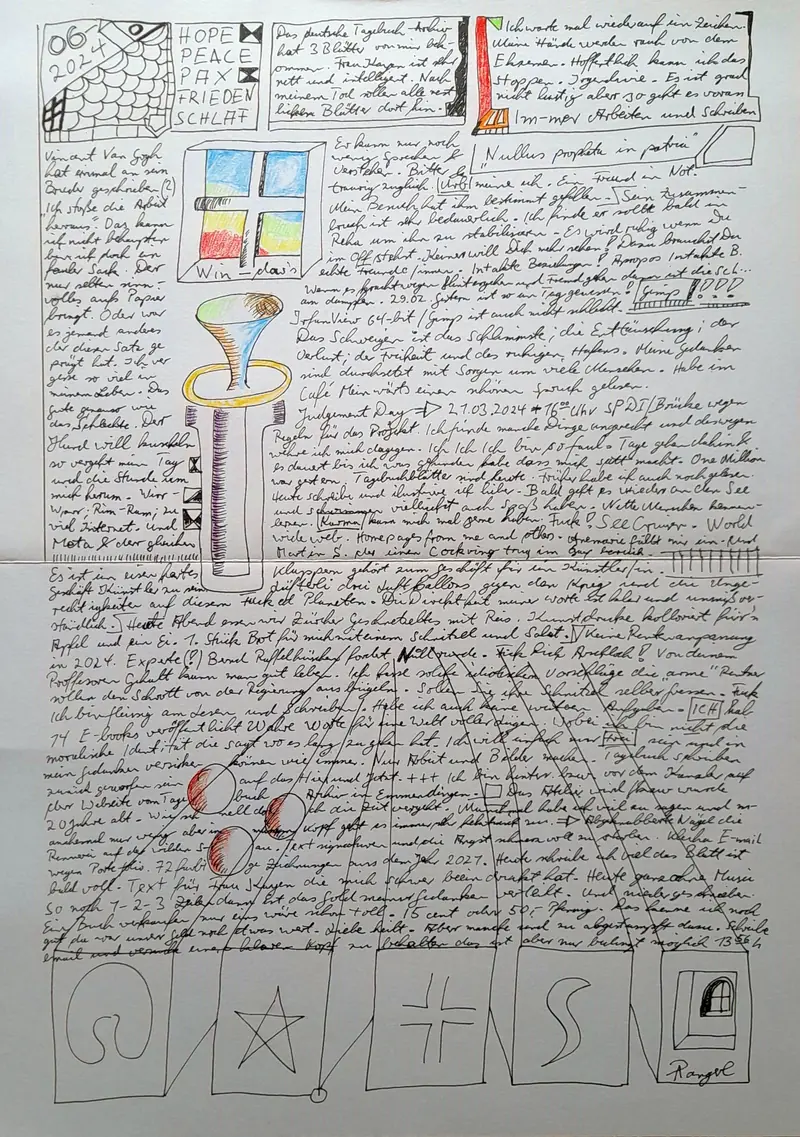 06
2024
HOPE
PEACE
PAX
FRIEDEN
SCHLAF
Das deutsche Tagebuch-Archiv
hat 3 Blätter von mir bek-
ommen. Frau Kayen ist sehr
nett und intelligent. Nach
meinem Tod sollen alle rest
lichen Blätter dort hin.
Ich warte mal wieder auf ein Zeichen.
Meine Hände werden rauh von dem
Ekzemen. Hoffentlich kann ich das
stoppen. Irgendwie. Es ist grad
nicht lustig aber so geht es voran
Im-mer Arbeiten und Schreiben
"Nullus propheta in patria"
Vincent Van Gogh
hat einmal an sein
Bruder geschrieben (?)
"Ich stoße die Arbeit
heraus". Das kann
ich nicht behaupten
bin ich doch ein
fauler Sack. Der
nur selten sinn-
volles aufs Papier
bringt. Oder war
es jemand anderes
der diesen Satz ge
prägt hat. Ich ver
gesse so viel in
meinem Leben. Das
gute genauso wie
das Schlechte. Der
Hund will kuscheln
so vergeht mein Tag
und die Stunde um
mich herum. Wirr-
Warr; Rim-Ram; zu
viel Internet. und
Meta & der gleichen
Win-dows
Er kann nur noch
wenig Sprechen &
Verstehen. Bitte
traurig zugleich. Urb meine ich. Ein Freund in Not.
Mein Besuch hat ihm bestimmt gefallen. Sein Zusammen-
bruch ist sehr bedauerlich. Ich finde er sollte bald in
Reha um ihn zu stabilisieren. Es wird ruhig wenn Du
im Off stehst. Keiner will Dich mehr sehen? Dazu brauchst Du
echte Freunde/innen. Intakte Beziehungen! Apropos Intakte B.
am dampfen. 29.02. Gestern ist so ein Tag gewesen! Gimp !???
IrfanView 64-bit/Gimp ist auch nicht schlecht.
Das Schweigen ist das Schlimmste; die Enttäuschung; der
Verlust; der Freiheit und des ruhigen Hafens. Meine Gedanken
sind durchsetzt mit Sorgen um viele Menschen. Habe im
Café Mein wärts einen schönen Spruch gelesen.
Judgement Day → 21.03.2024 16°° Uhr SPDI/Brücke wegen
Regeln für das Projekt. Ich finde manche Dinge ungerecht und deswegen
wehre ich mich dagegen. Ich Ich Ich bin so faul. Tage gehen dahin &
es dauert bis ich was gefunden habe dass mich satt macht. One Million
war gestern. Tagebuchblätter sind heute. Früher habe ich auch noch gelesen.
Heute schreibe und illustriere ich lieber. Bald geht es wieder an den See
und Schwimmen vielleicht auch Spaß haben. Nette Menschen kennen-
lernen. Karma kann mich mal gerne haben. Fuck! See Cruiser. World
wide web. Homepages from me and others. Annemarie fällt mir ein. Und
Martin S. der einen Cockring trug im Gay Bereich.
Es ist ein
Klappern gehört zum Geschäft für ein Künstler/in.
Geschäft Künstler zu sein
drei Luftballons gegen den Krieg und die Unge-
rechtigkeiten auf diesem Fucked Planeten. Die Direktheit meiner Worte ist klar und unmissver-
ständlich. Heute Abend essen wir Zürcher Geschnetzeltes mit Reis. Kunstdrucke kolloriert für'n
Apfel und ein Ei. 1. Stück Brot für mich mit einem Schnitzel und Salat. Keine Rentenanpassung
in 2024. Experte(?) Bernd Raffelhüschen fordet Nullrunde. Fick Dich Arschloch! Von deinem
Professoren Gehalt kann man gut leben. Ich hasse solche idiotischen Vorschläge die "arme" Rentner
sollen den Schrott von der Regierung ausbügeln. Sollen Sie ihre Schnitzel selber fressen. Fuck
Ich bin fleissig am Lesen und Schreiben. Habe ich auch keine weiteren Aufgaben. ICH hab
74 E-books veröffentlicht Wahre Worte für eine Welt voller Lügen. Wobei ich bin nicht die
moralische Identität die sagt wo es lang zu gehen hat. Ich will einfach nur Frau sein und in
mein Gedanken versinken können wie immer. Nur Arbeit und Bilder machen. Tagebuch schreiben
zurück geworfen sein auf das Hier und Jetzt. +++ Ich bin hinter bzw vor dem Kanzler auf
der Website vom Tage buch Archiv in Emmendingen. Das Atelier wurde
20 Jahre alt. Wie schnell doch die Zeit vergeht. Manchmal habe ich viel zu sagen und m-
anchemal nur wenig aber in meinem Kopf geht es immer sehr hektisch zu. → Abgeknabberte Nägel die
Rennerei auf das Text signaturen und die Angst schmerzvoll zu sterben. Kleine E-mail
wegen Portfolio. 72 farbi ge Zeichnungen aus dem Jahr 2021. Heute schreibe ich viel das Blatt ist
bald voll. Text für Frau Kayen die mich schwer beeindruckt hat. Heute ganz ohne Musik
So noch 1-2-3 Zeilen dann ist das Gold meiner Gedanken verteilt. Und niedergeschrieben.
Ein Buch verkaufen nur eins wäre schon toll. 15 cent oder 50,- Pfennig. Das kenne ich noch
gut da war unser Geld noch etwas wert. Liebe heilt. Aber manche sind zu abgestumpft dazu. Schreibe
email und versuche einen klaren Kopf zu behalten das ist aber nur bedingt möglich 13 56 h
Rangel